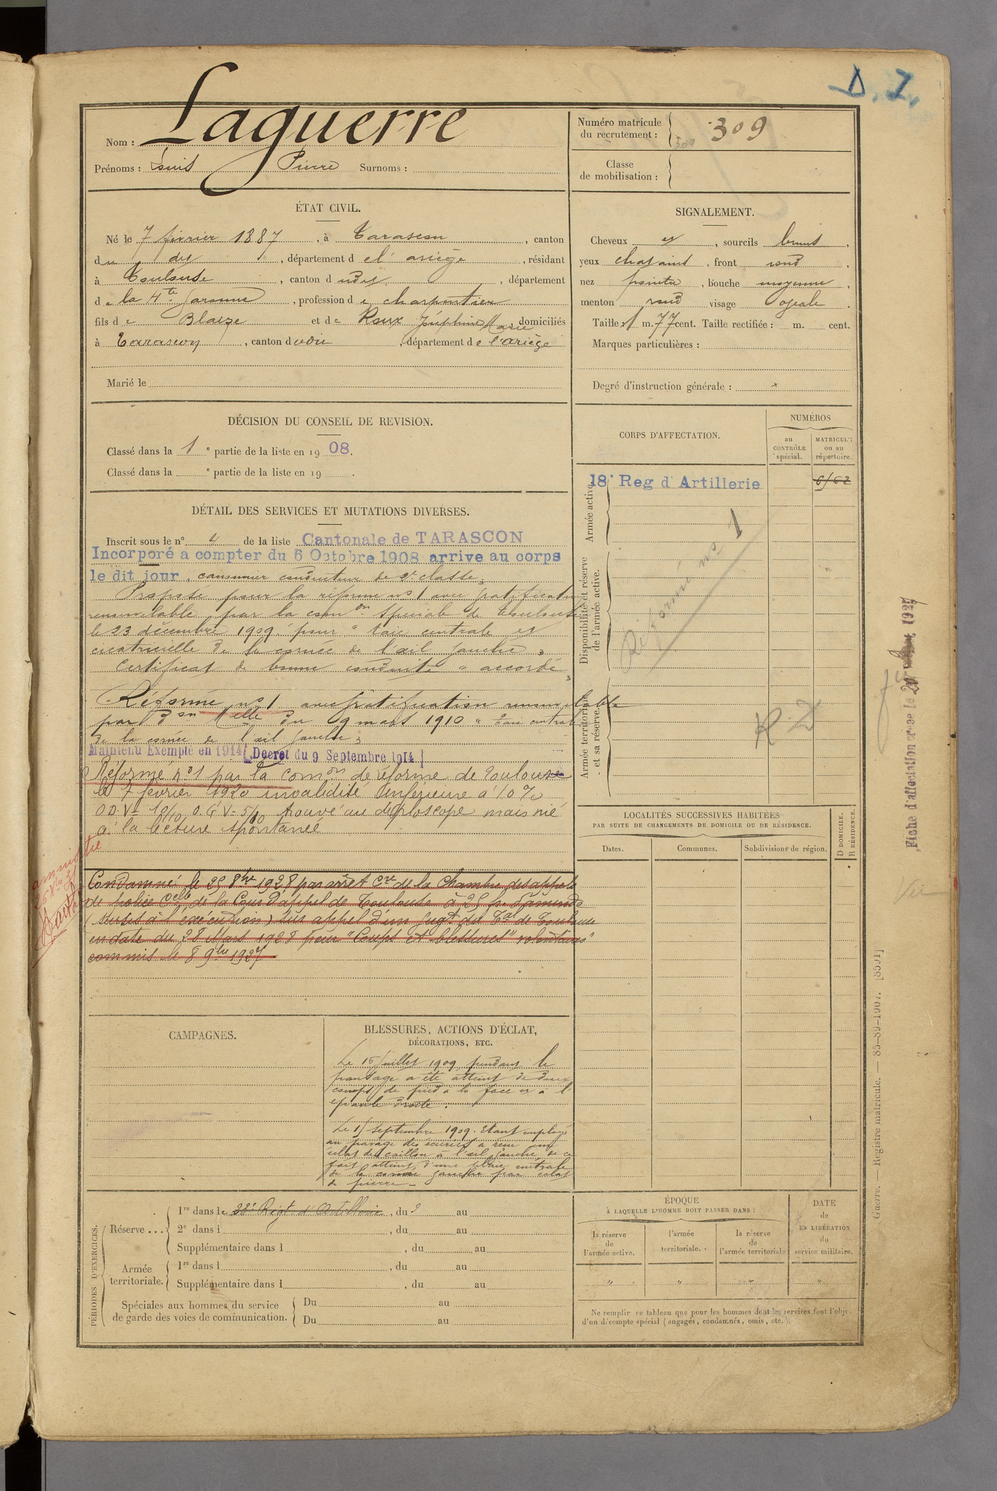 D. I.
Nom : Laguerre
Prénoms : Louis Pierre Surnoms :
Numéro matricule du recrutement : 309
Classe de mobilisation :
ÉTAT CIVIL.
Né le 7 février 1887, à Tarascon, canton
du dit, département d e l'ariège, résidant
à Toulouse, canton d udit, département
d e la Hte Garonne, profession d e charpentier
fils d e Blaize et de Roux Joséphine Marie domiciliés
à Tarascon, canton d udit, département d e l'ariège
Marié le
SIGNALEMENT.
Cheveux et, sourcils bruns,
yeux chatains, front rond,
nez pointu, bouche moyenne,
menton rond visage ovale.
Taille : 1 m. 77 cent. Taille rectifiée : m. cent.
Marques particulières :
Degré d'instruction générale :
DÉCISION DU CONSEIL DE REVISION.
Classé dans la 1e partie de la liste en 1908.
Classé dans la e partie de la liste en 19 .
CORPS D'AFFECTATION.
NUMÉROS
au CONTRÔLE spécial.
MATRICULE ou au répertoire.
Armée active.
18e Reg d'Artillerie
Disponibilité et réserve de l'armée active.
Réformé no 1
Armée territoriale et sa réserve.
R. D
DÉTAIL DES SERVICES ET MUTATIONS DIVERSES.
Inscrit sous le n° 4 de la liste Cantonale de TARASCON
Incorporé à compter du 6 Octobre 1908 arrive au corps
le dit jour, canonnier conducteur de 2e classe.
Proposé pour la réforme no 1 avec gratification
renouvelable par la comon spéciale de Toulouse
le 23 décembre 1909 pour "taie centrale et
cicatricielle de la cornée de l'œil gauche"
Certificat de bonne conduite "accordé"
Réformé no 1 avec gratification renouvelable
par Don Mlle du 9 mars 1910 "taie centrale
de la cornée de l'œil gauche"
Maintenu Exempté en 1914 (Décret du 9 Septembre 1914)
Réformé no 1 par la Comon de réforme de Toulouse
le 7 février 1920 invalidité inférieure à 10 %
O.D. V= 10/10, O.G V= 5/10 trouvé au diploscope mais nié
à la lecture spontanée
Condamné le 25 8bre 1928 par arrêt Cre de la Chambre des appels
de police Celle de la Cour d'appel de Toulouse à 25 fr d'amende
(sursis à l'exécution) sur appel d'un jugt du Tal de Toulouse
en date du 28 Mars 1928 pour "Coups et blessures" volontaires"
commis le 8 9bre 1927
LOCALITÉS SUCCESSIVES HABITÉES
PAR SUITE DE CHANGEMENTS DE DOMICILE OU DE RÉSIDENCE.
Dates.
Communes.
Subdivisions de région.
D DOMICILE.
R RÉSIDENCE.
CAMPAGNES.
BLESSURES, ACTIONS D'ÉCLAT,
DÉCORATIONS, ETC.
Le 16 juillet 1909 pendant le
pansage a été atteint de deux
coups de pied à la face et à l'
épaule droite.
Le 15 septembre 1909. Etant employé
au pavage des écuries a reçu un
éclat de caillou à l'œil gauche, de ce
fait atteint d'une plaie centrale
de la cornée gauche par éclat
de pierre
PÉRIODES D'EXERCICES.
Réserve...
1re dans le 23e Régt d'Artillerie, du ? au
2e dans l , du au
Supplémentaire dans l , du au
Armée territoriale.
1re dans l , du au
Supplémentaire dans l , du au
Spéciales aux hommes du service
de garde des voies de communication.
Du au
Du au
ÉPOQUE
À LAQUELLE L'HOMME DOIT PASSER DANS :
la réserve de l'armée active.
l'armée territoriale.
la réserve de l'armée territoriale
DATE de la LIBÉRATION du service militaire.
" " " "
Ne remplir ce tableau que pour les hommes dont les services font l'objet
d'un décompte spécial (engagés, condamnés, omis, etc.).
Guerre. — Registre matricule. — 85-89-1907. [8591]